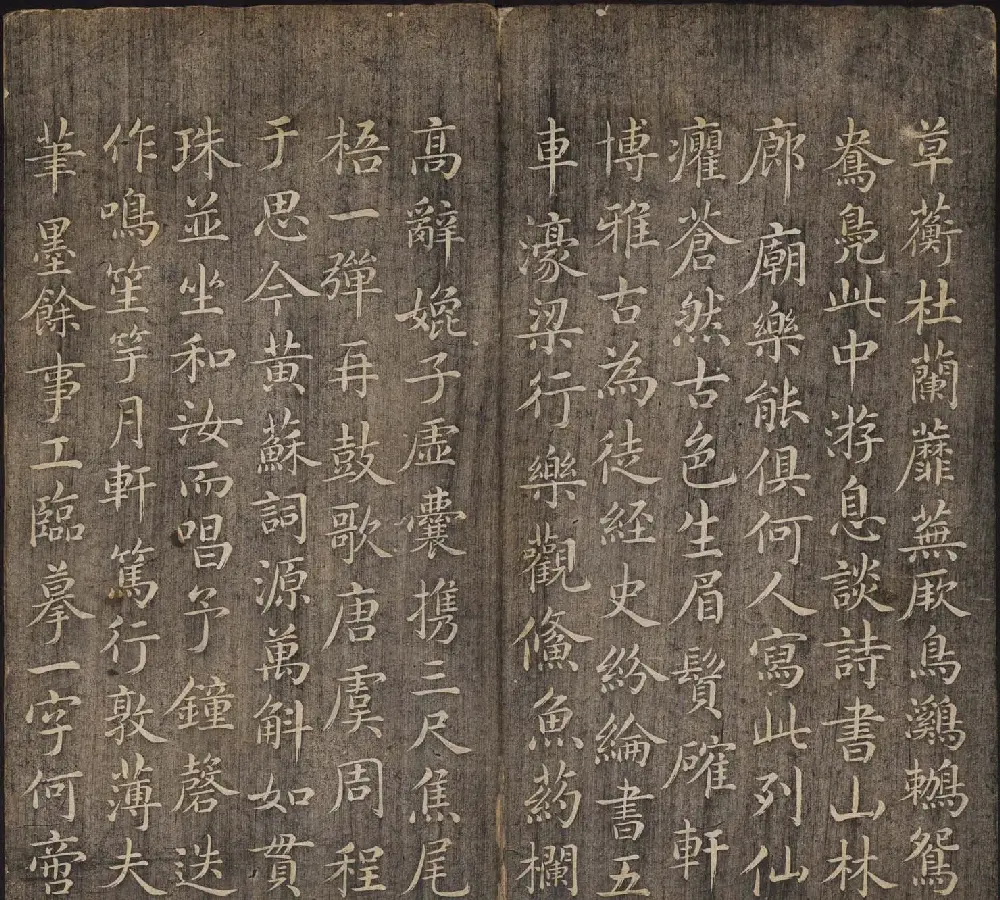 草蘅杜蘭蘼蕪厥鳥鸂鶒鴛
鴦鳧此中游息談詩書山林
廊廟樂能俱何人寫此列仙
癯蒼然古色生眉鬚確軒
博雅古為徒經史紛綸書五
車濠梁行樂觀鯈魚葯欄
高辭娩子虛囊攜三尺焦尾
梧一彈再鼓歌唐虞周程
于思今黃蘇詞源萬斛如貫
珠並坐和汝而唱予鐘磬迭
作鳴笙竽月軒篤行敦薄夫
筆墨餘事工臨摹一字何啻